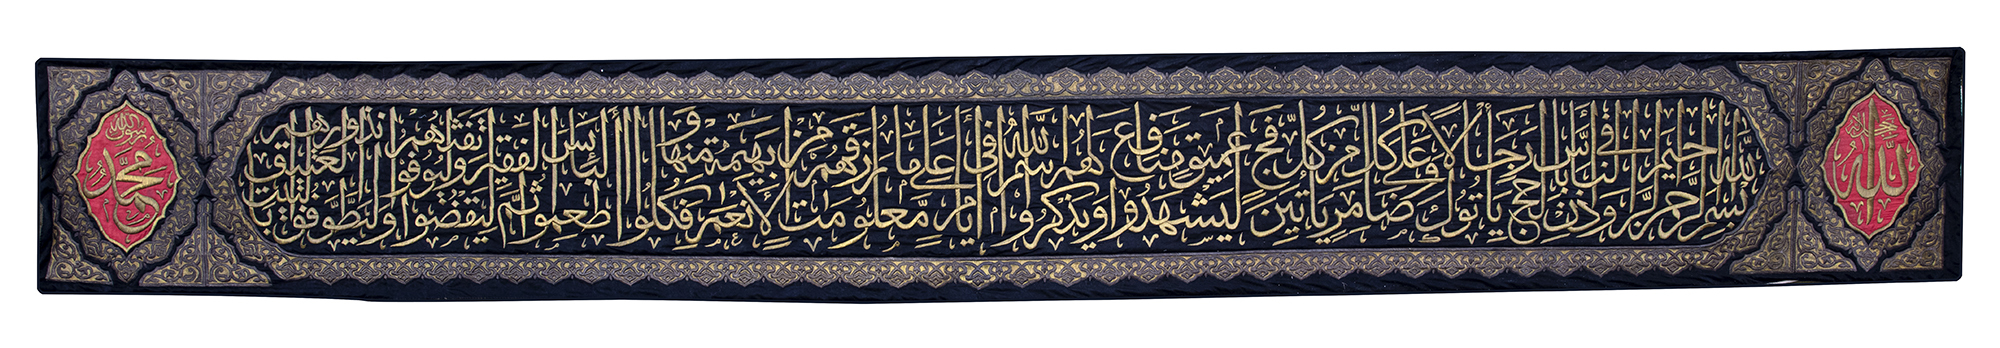 الله جل جلاله
بسم الله الرحمن الرحيم وأذن في الناس بالحج يأتوك رجالا وعلى كل ضامر يأتين من كل فج عميق ليشهدوا منافع لهم ويذكروا اسم الله في أيام معلومات على ما رزقهم من بهيمة الأنعام فكلوا منها وأطعموا البائس الفقير ثم ليقضوا تفثهم وليوفوا نذورهم وليطوفوا بالبيت العتيق
محمد رسول الله